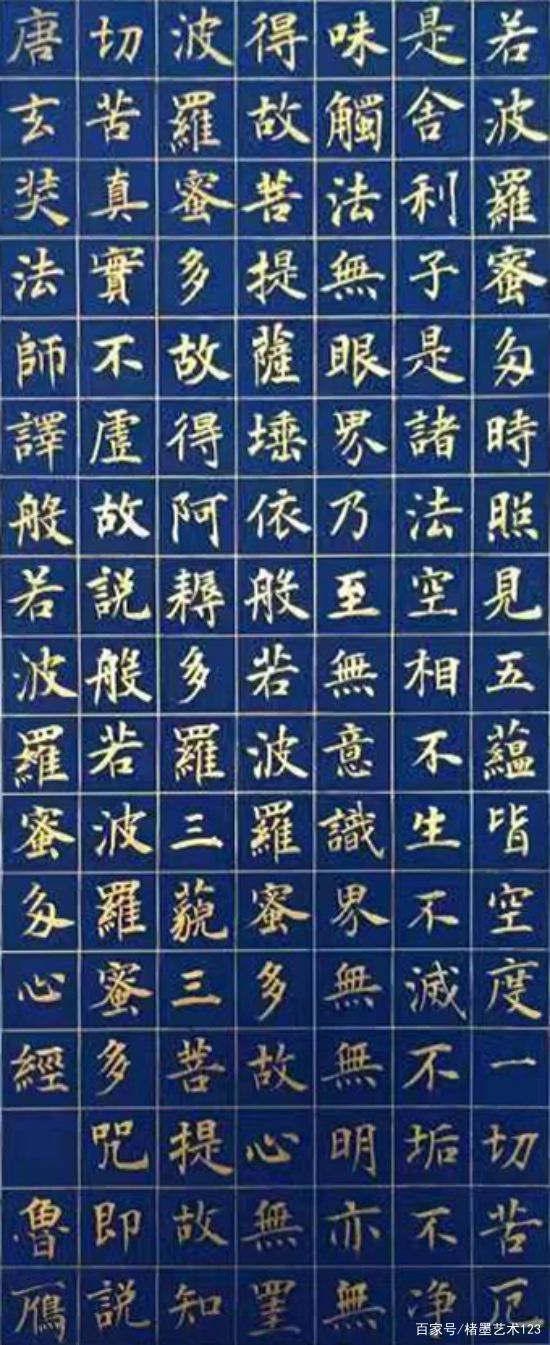 若波羅蜜多時照見五蘊皆空度一切苦厄
是舍利子是諸法空相不生不滅不垢不净
味觸法無眼界乃至無意識界無無明亦無
得故菩提薩埵依般若波羅蜜多故心無罣
波羅蜜多故得阿耨多羅三藐三菩提故知
切苦真實不虛故說般若波羅蜜多咒即說
唐玄奘法師譯般若波羅蜜多心經 魯雁
百家号/楮墨艺术123